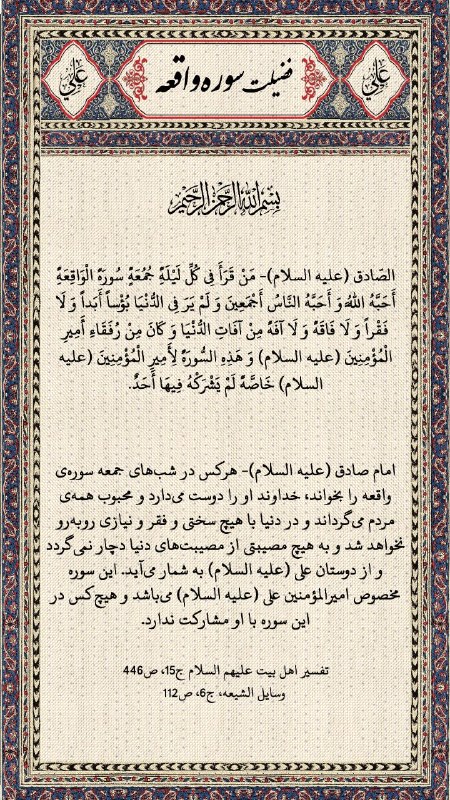 علي
فضیلت سوره واقعه
علي
بِسْمِ اللهِ الرَّحْمنِ الرَّحِيمِ
الصّادق (علیه السلام)- مَنْ قَرَأَ فِی کُلِّ لَیْلَةِ جُمُعَةٍ سُورَةَ الْوَاقِعَةِ
أَحَبَّهُ اللهُ وَ أَحَبَّهُ النَّاسُ أَجْمَعِینَ وَ لَمْ یَرَ فِی الدُّنْیَا بُؤْساً أَبَداً وَ لَا
فَقْراً وَ لَا فَاقَةً وَ لَا آفَةً مِنْ آفَاتِ الدُّنْیَا وَ کَانَ مِنْ رُفَقَاءِ أَمِیرِ
الْمُؤْمِنِینَ (علیه السلام) وَ هَذِهِ السُّورَةُ لِأَمِیرِ الْمُؤْمِنِینَ (علیه
السلام) خَاصَّةً لَمْ یَشْرَکْهُ فِیهَا أَحَدٌ.
امام صادق (علیه السلام)- هرکس در شب‌های جمعه سوره‌ی
واقعه را بخواند، خداوند او را دوست می‌دارد و محبوب همه‌ی
مردم می‌گرداند و در دنیا با هیچ سختی و فقر و نیازی روبه‌رو
نخواهد شد و به هیچ مصیبتی از مصیبت‌های دنیا دچار نمی‌گردد
و از دوستان علی (علیه السلام) به شمار می‌آید. این سوره
مخصوص امیرالمؤمنین علی (علیه السلام) می‌باشد و هیچ‌کس در
این سوره با او مشارکت ندارد.
تفسیر اهل بیت علیهم السلام ج15، ص446
وسایل الشیعه، ج6، ص112